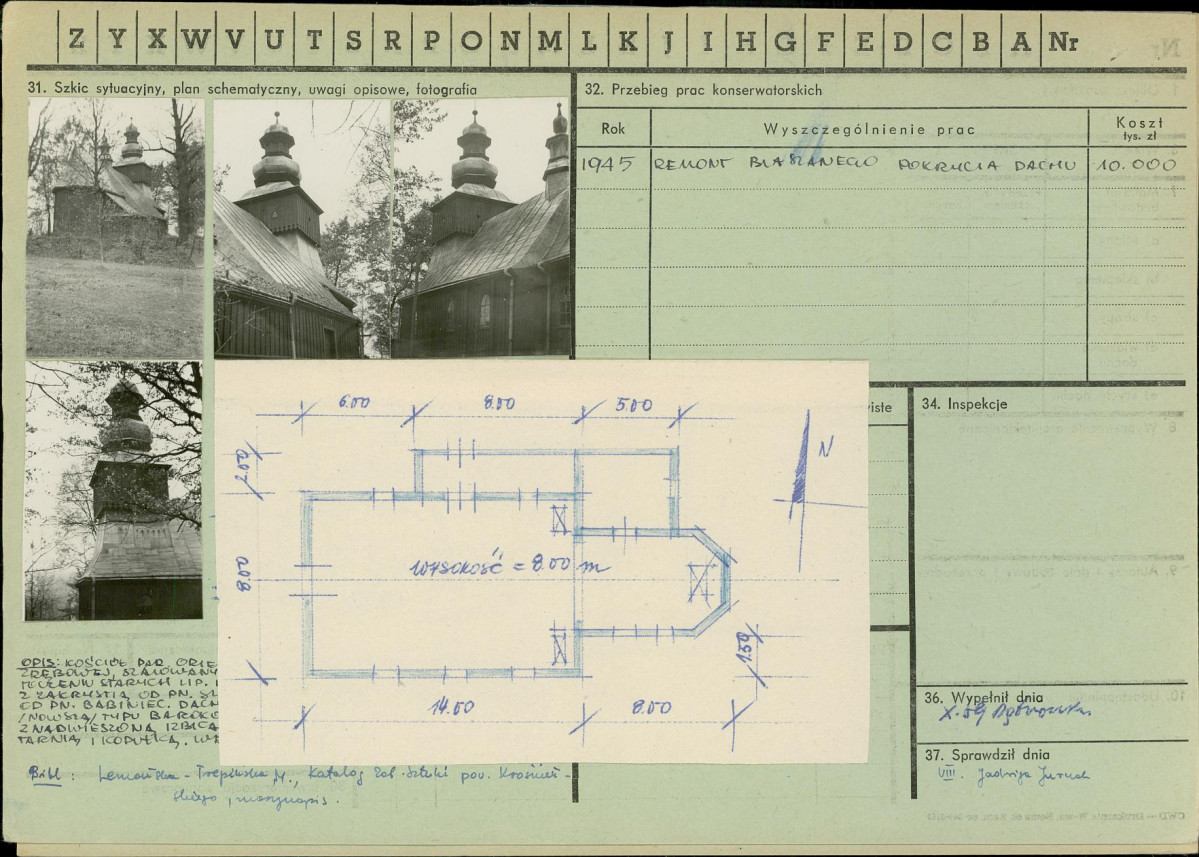 Z Y X W V U T S R P O N M L K J I H G F E D C B A Nr
31. Szkic sytuacyjny, plan schematyczny, uwagi opisowe, fotografia
32. Przebieg prac konserwatorskich
Rok Wyszczególnienie prac Koszt tys. zł
1945 REMONT BLASZANEGO POKRYCIA DACHU 10.000
6.00 8.00 5.00
N
WYSOKOŚĆ = 8.00 m
1.50
14.00 8.00
iste
34. Inspekcje
OPIS: KOŚCIÓŁ PAR. ORIE
ZRĘBOWEJ, SZALOWANY
OTOCZENIU STARYCH LIP.
Z ZAKRYSTIĄ OD PN.
OD PN. BABINIEC. DACH
/NOWSZA/ TYPU BAROKO
Z NADWIESZONĄ IZBICĄ
TARNIĄ I KOPUŁKĄ.
Bibl: Lemańska-Trepińska M., Katalog Zab. Sztuki pow. Krośnień-
skiego, maszynopis.
36. Wypełnił dnia
X.59
37. Sprawdził dnia
VIII. Jadwiga